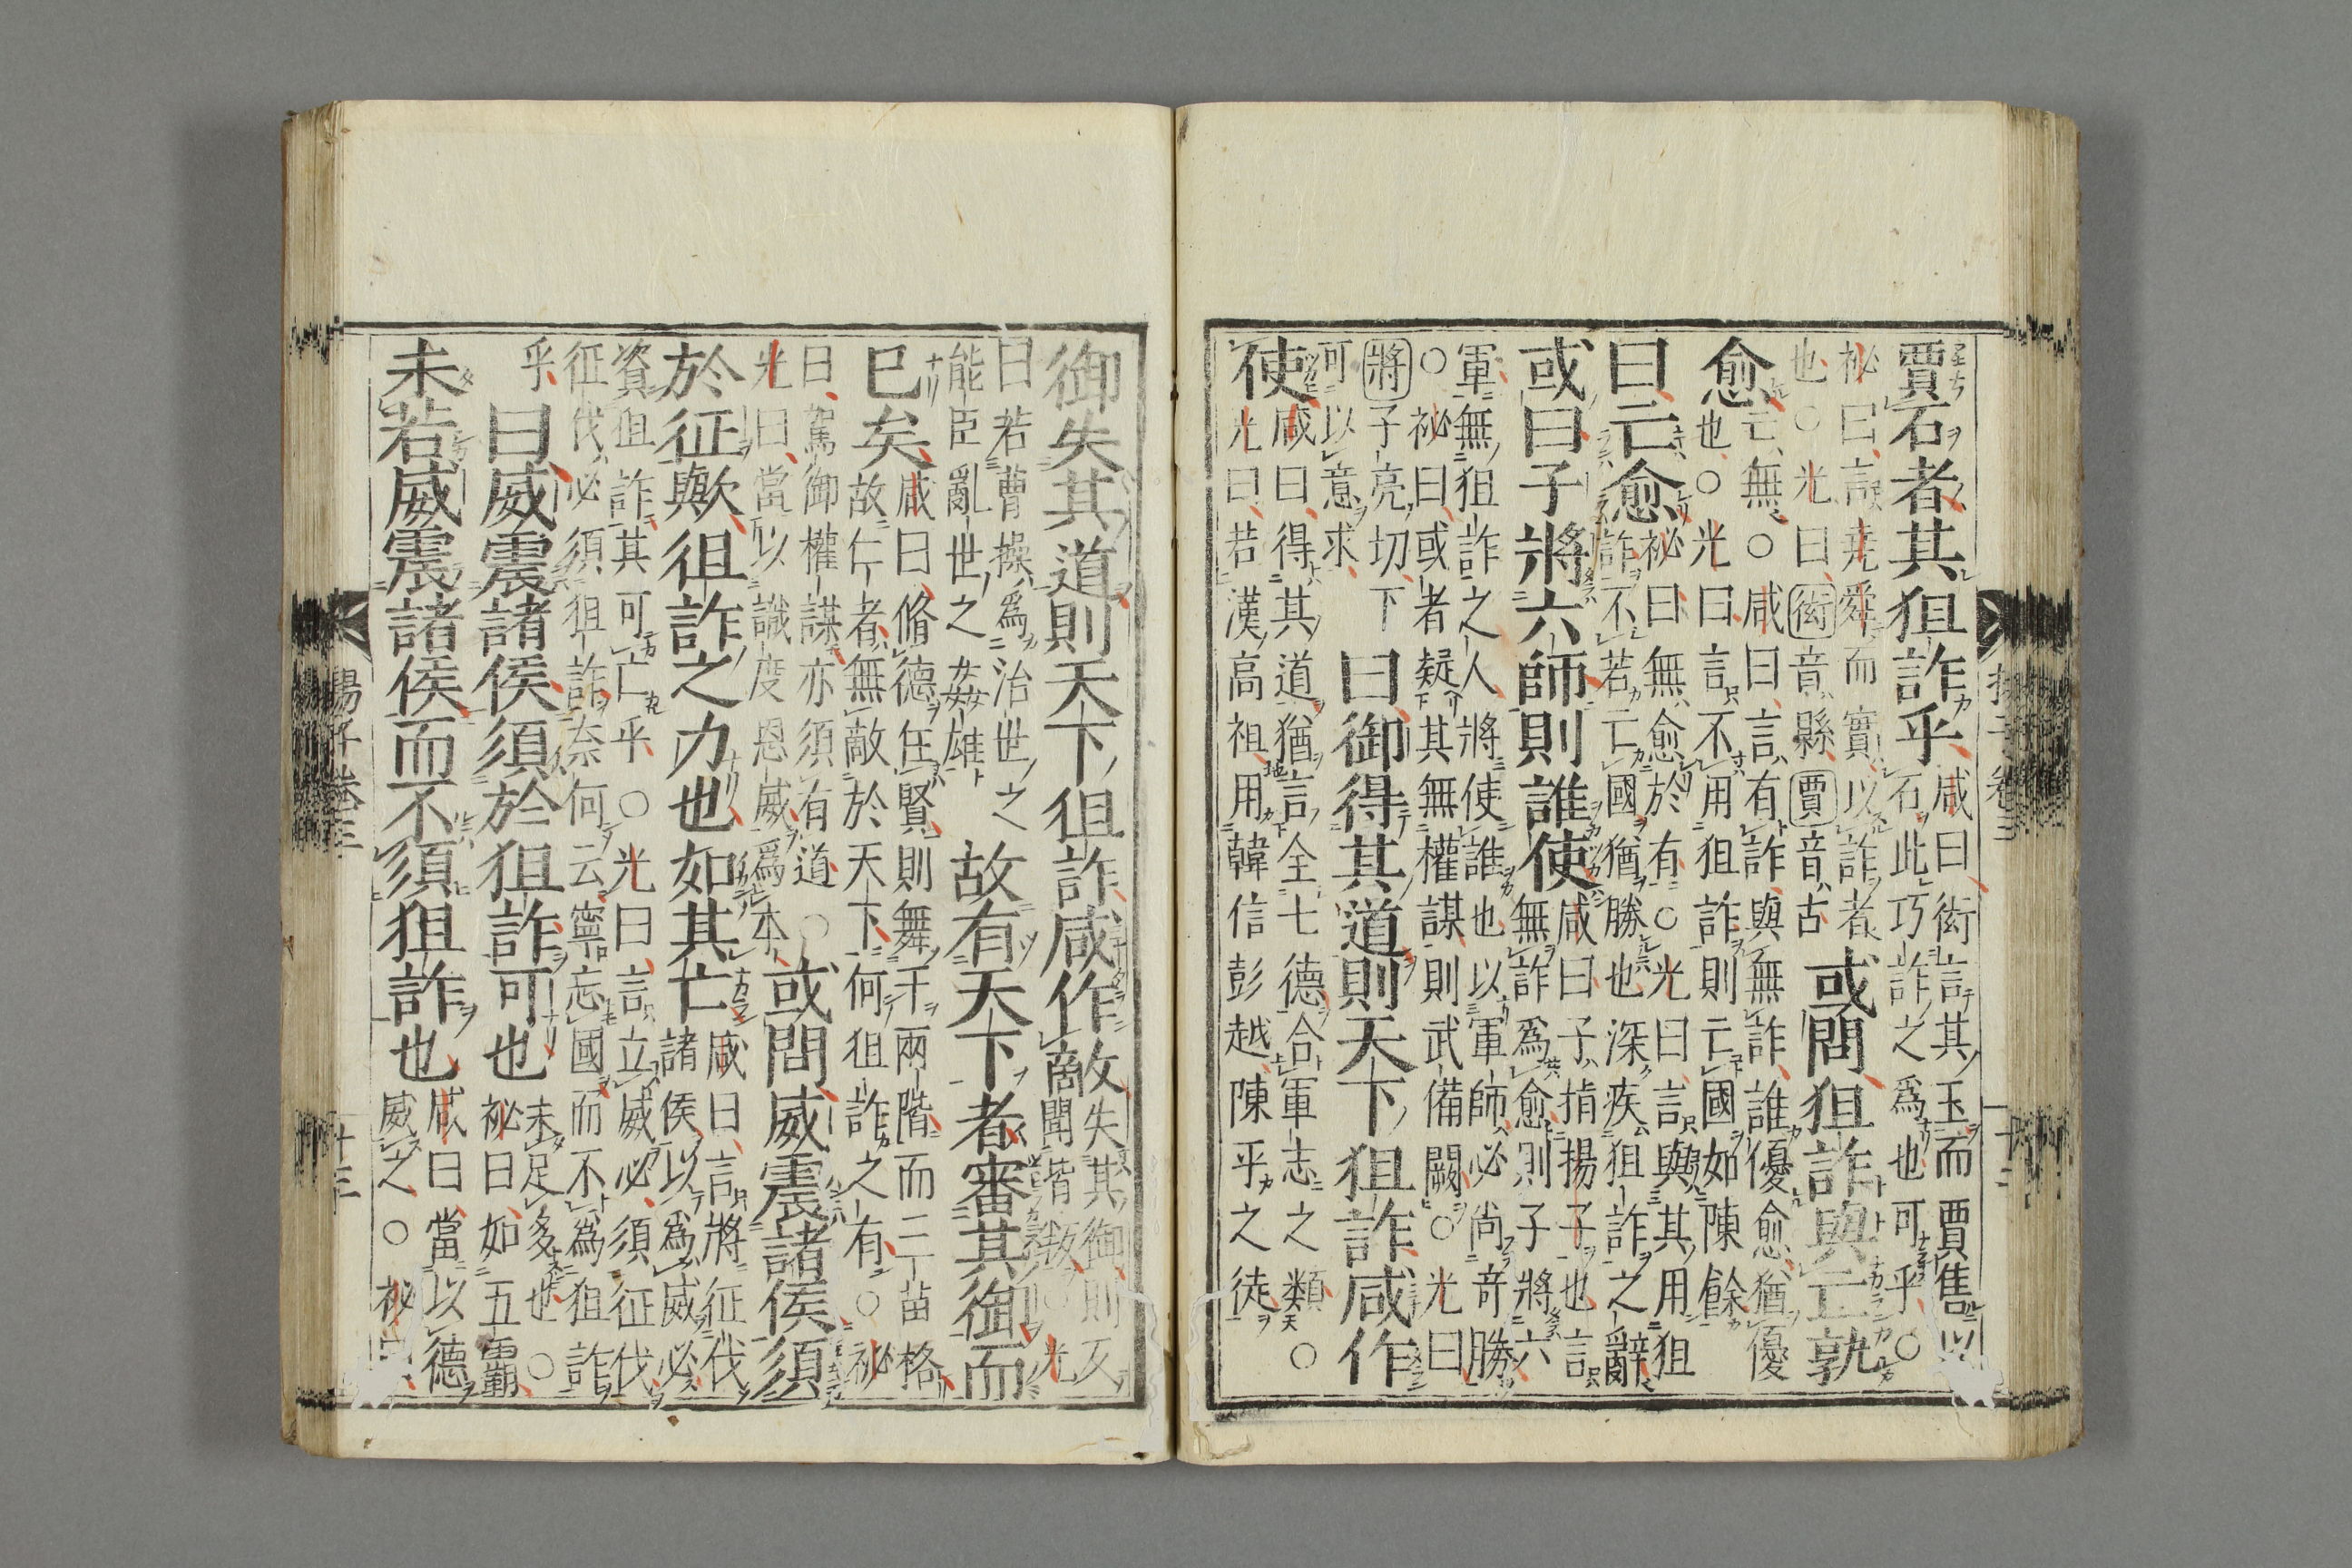 賈石者其狙詐乎
咸曰衒言其玉而賈售以
石此巧詐之爲也可乎○
祕曰言堯舜而實以詐者
也○光曰衒音縣賈音古
或問狙詐與亡孰
愈
亡無○咸曰言有詐與無詐誰優愈猶優
也○光曰言不用狙詐則亡國如陳餘
曰亡愈
祕曰無愈於有○光曰言與其用狙
詐不若亡國猶勝也深疾狙詐之辭
或曰子將六師則誰使
咸曰子指揚子也言
無詐爲愈則子將六
軍無狙詐之人將使誰也以軍師必尚奇勝
○祕曰或者疑其無權謀則武備闕○光曰
將子亮切下
可以意求
曰御得其道則天下狙詐咸作
使
咸曰得其道猶言全七德合軍志之類○
光曰若漢高祖用韓信彭越陳平之徒
揚子卷三
十三
御失其道則天下狙詐咸作敵
失其御則反
聞皆叛○光
曰若曹操爲治世之
能臣亂世之姦雄
故有天下者審其御而
已矣
咸曰脩德任賢則舞干兩階而三苗格
故仁者無敵於天下何狙詐之有○祕
曰駕御權謀亦須有道○
光曰當以識度恩威爲本
或問威震諸侯須
於征歟狙詐之力也如其亡
咸曰言將征伐
諸侯以爲威必
資狙詐其可亡乎○光曰言立威必須征伐
征伐必須狙詐奈何云寧忘國而不爲狙詐
乎
曰威震諸侯須於狙詐可也
未足多也○
祕曰如五霸
未若威震諸侯而不須狙詐也
咸曰當以德
威之○祕
揚子卷三
十三